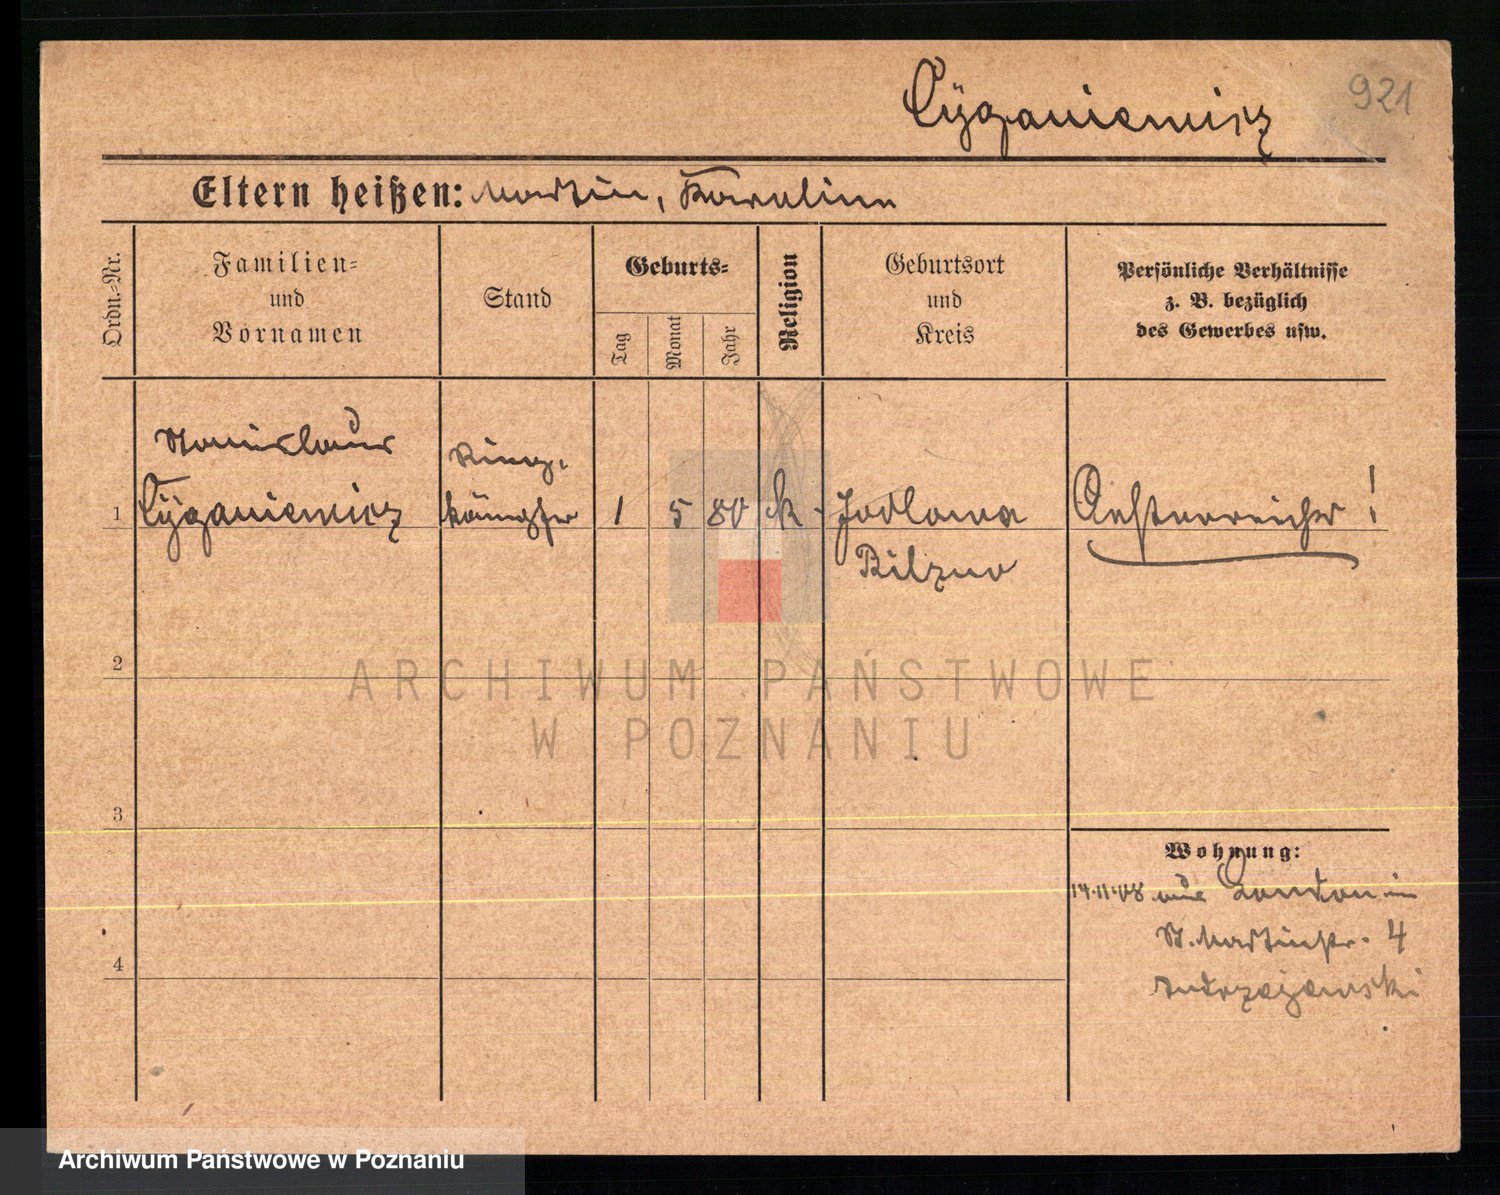 921
Cÿganiewicz
Eltern heißen: Martin, Karolina
Ordn.-Nr.
Familien-
und
Vornamen
Stand
Geburts-
Tag
Monat
Jahr
Religion
Geburtsort
und
Kreis
Persönliche Verhältnisse
z. B. bezüglich
des Gewerbes usw.
Stanislaus
Ring-
1 Cÿganiewicz kämpfer 1 5 80 k. Jodlowa Oesterreicher!
Pilzno
2
ARCHIWUM PAŃSTWOWE
W POZNANIU
3
Wohnung:
14.11.08 aus London in
St. Martinstr. 4
4
Archiwum Państwowe w Poznaniu